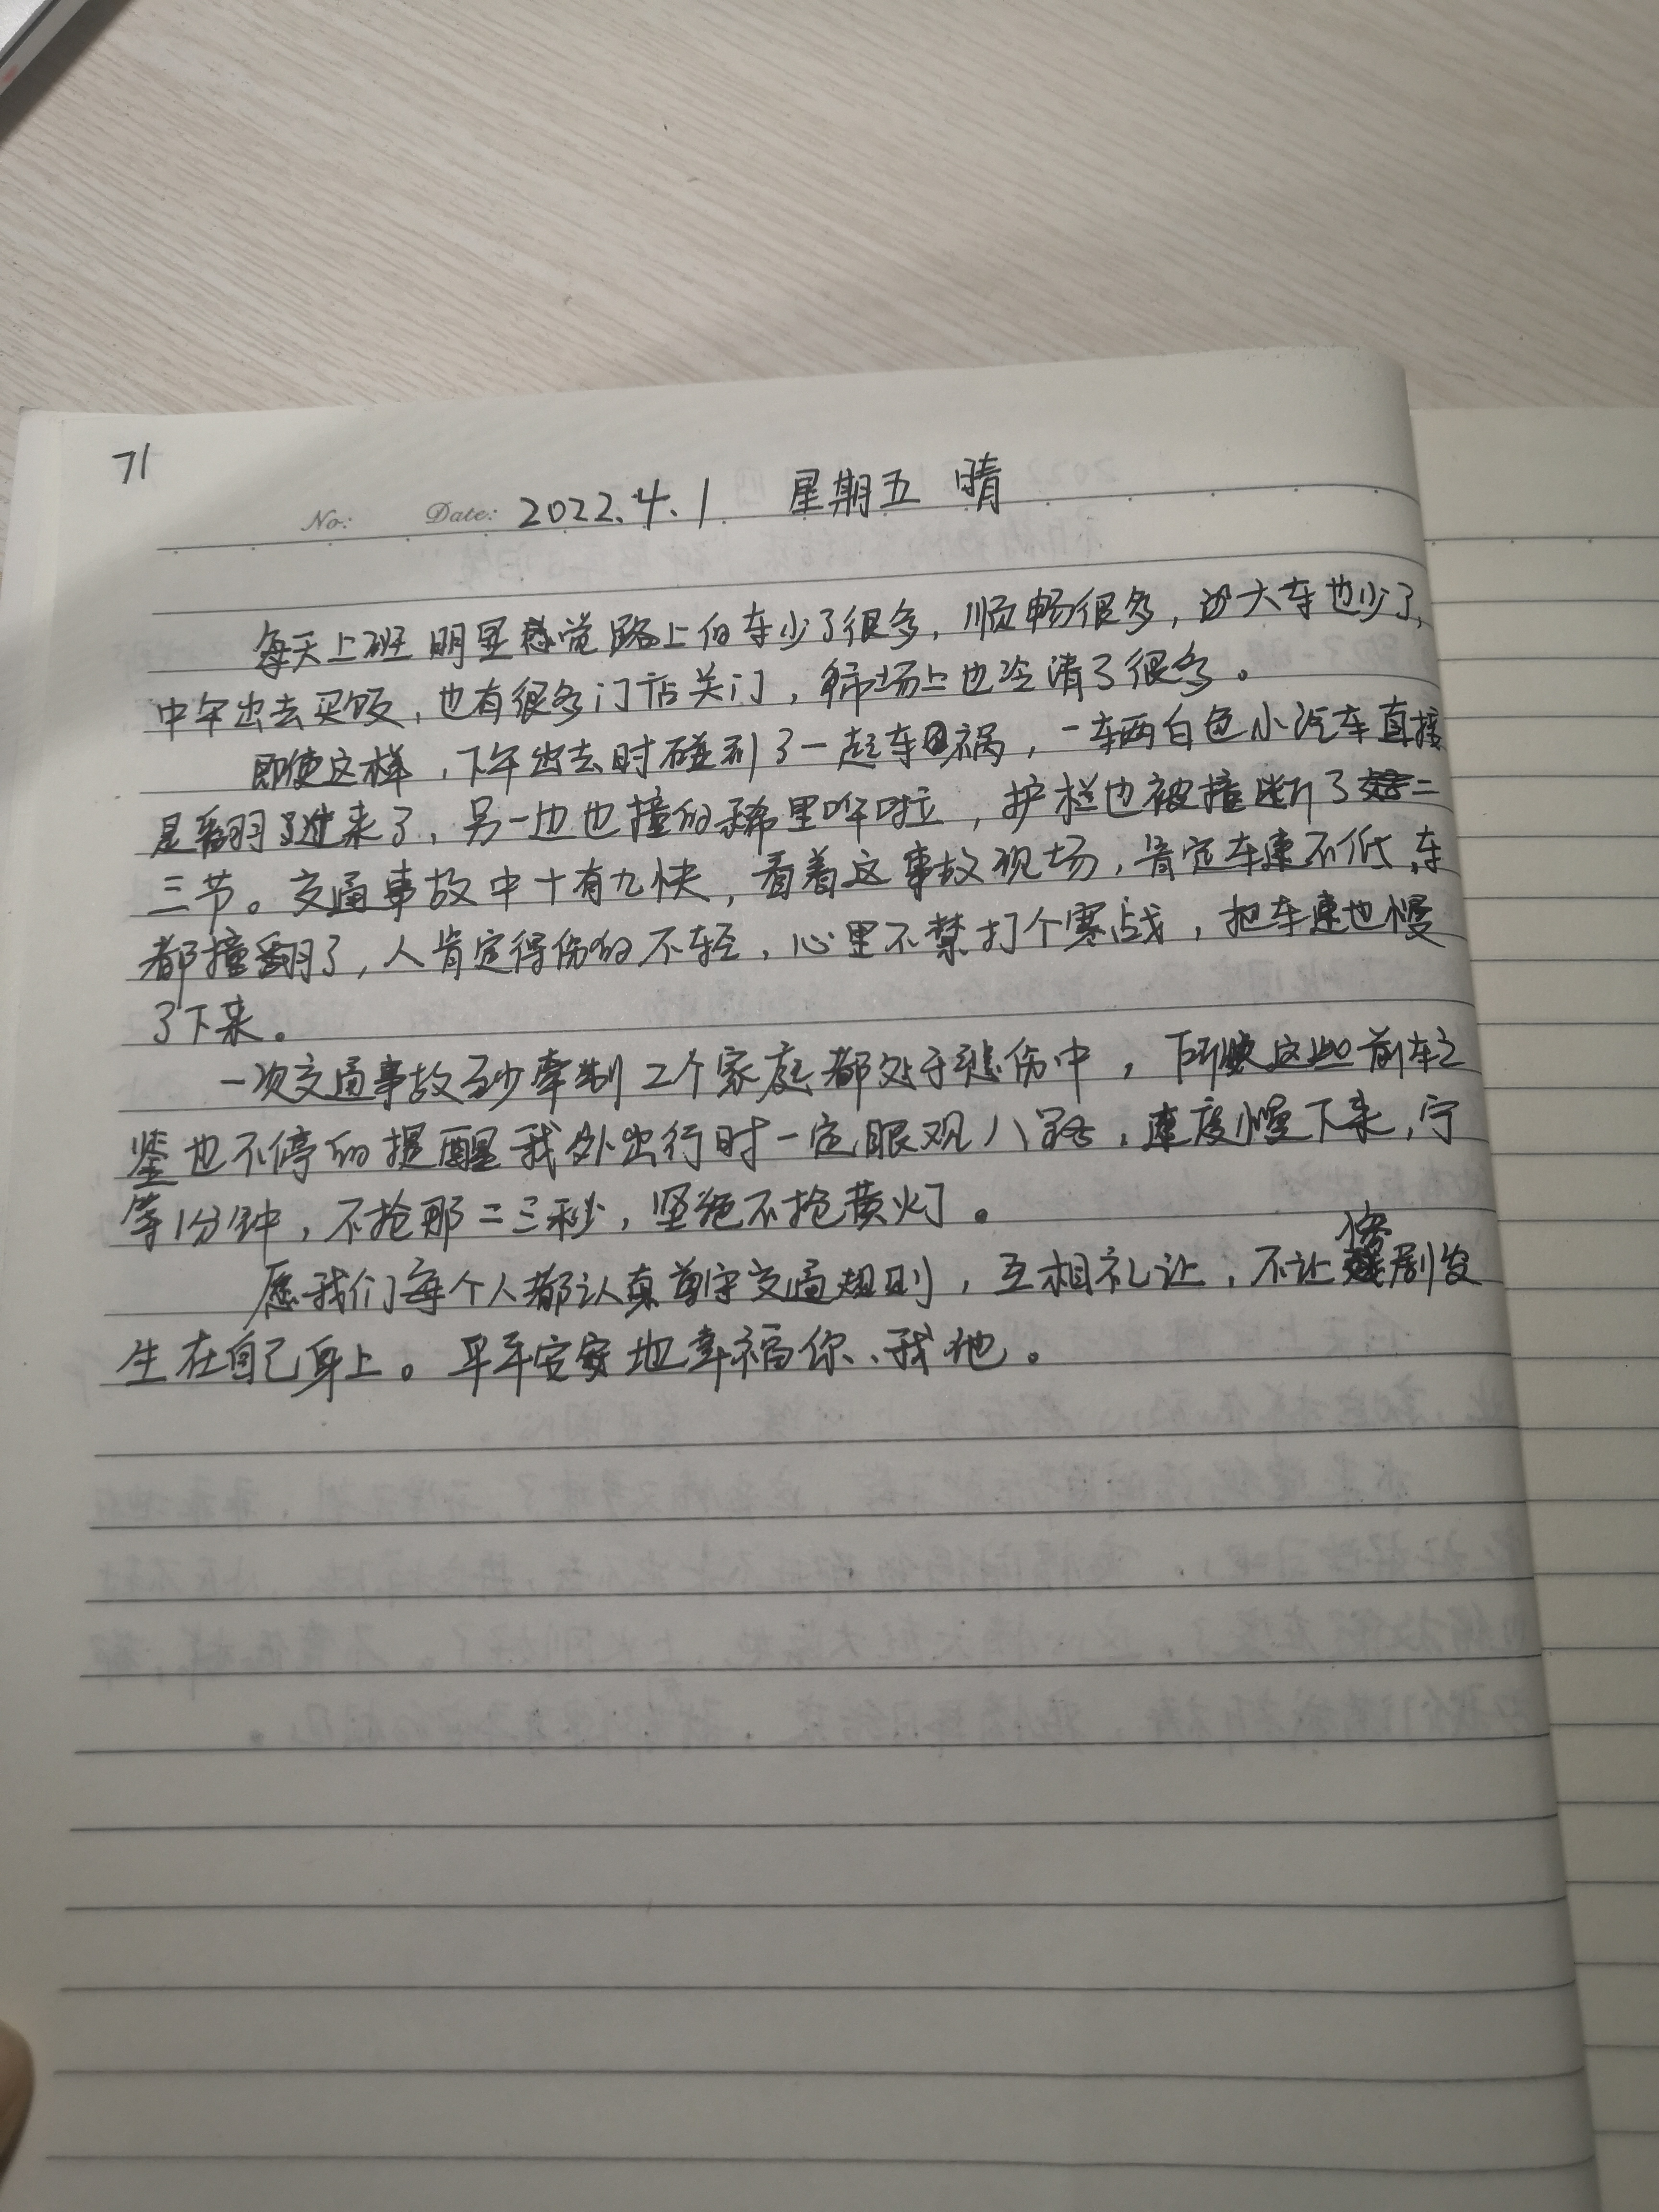 71
No: Date: 2022.4.1 星期五 晴
每天上班明显感觉路上的车少了很多,顺畅很多,边大车也少了,
中午出去买饭,也有很多门店关门,菜市场上也冷清了很多。
即使这样,下午出去时碰到了一起车祸,一车两白色小汽车直接
是翻了过来了,另一边也撞的稀里哗啦,护栏也被撞断了二
三节。交通事故中十有九快,看着这事故现场,肯定车速不低,车
都撞翻了,人肯定得伤的不轻,心里不禁打个寒战,把车速也慢
了下来。
一次交通事故至少牵制2个家庭都处于悲伤中,所这些前车之
鉴也不停的提醒我外出行时一定眼观八路,速度慢下来,宁
等1分钟,不抢那二三秒,坚绝不抢黄灯。
愿我们每个人都认真尊守交通规则,互相礼让,不让惨剧发
生在自己身上。平平安安地幸福你、我他。